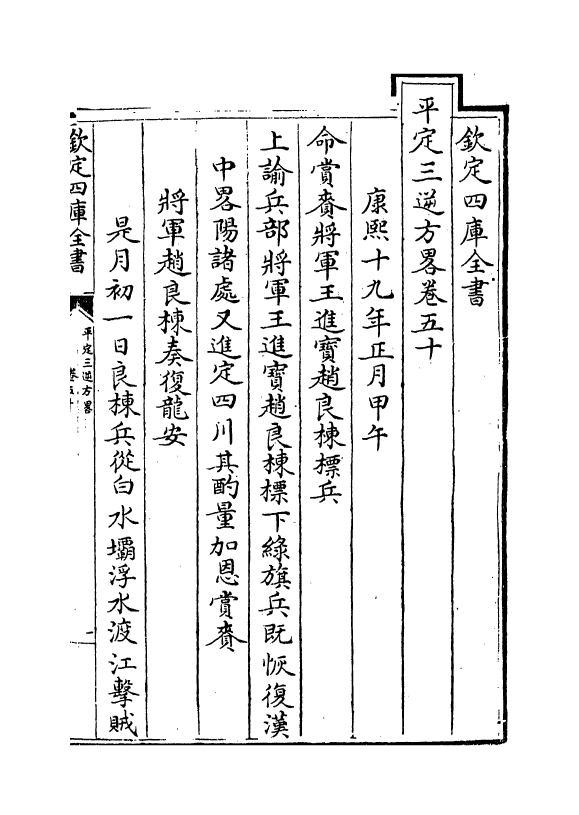 欽定四庫全書
平定三逆方畧卷五十
康熙十九年正月甲午
命賞賚將軍王進寶趙良棟標兵
上諭兵部將軍王進寶趙良棟標下綠旗兵既恢復漢
中畧陽諸處又進定四川其酌量加恩賞賚
將軍趙良棟奏復龍安
是月初一日良棟兵從白水壩浮水渡江擊賊
欽定四庫全書
平定三逆方畧
卷五十
一